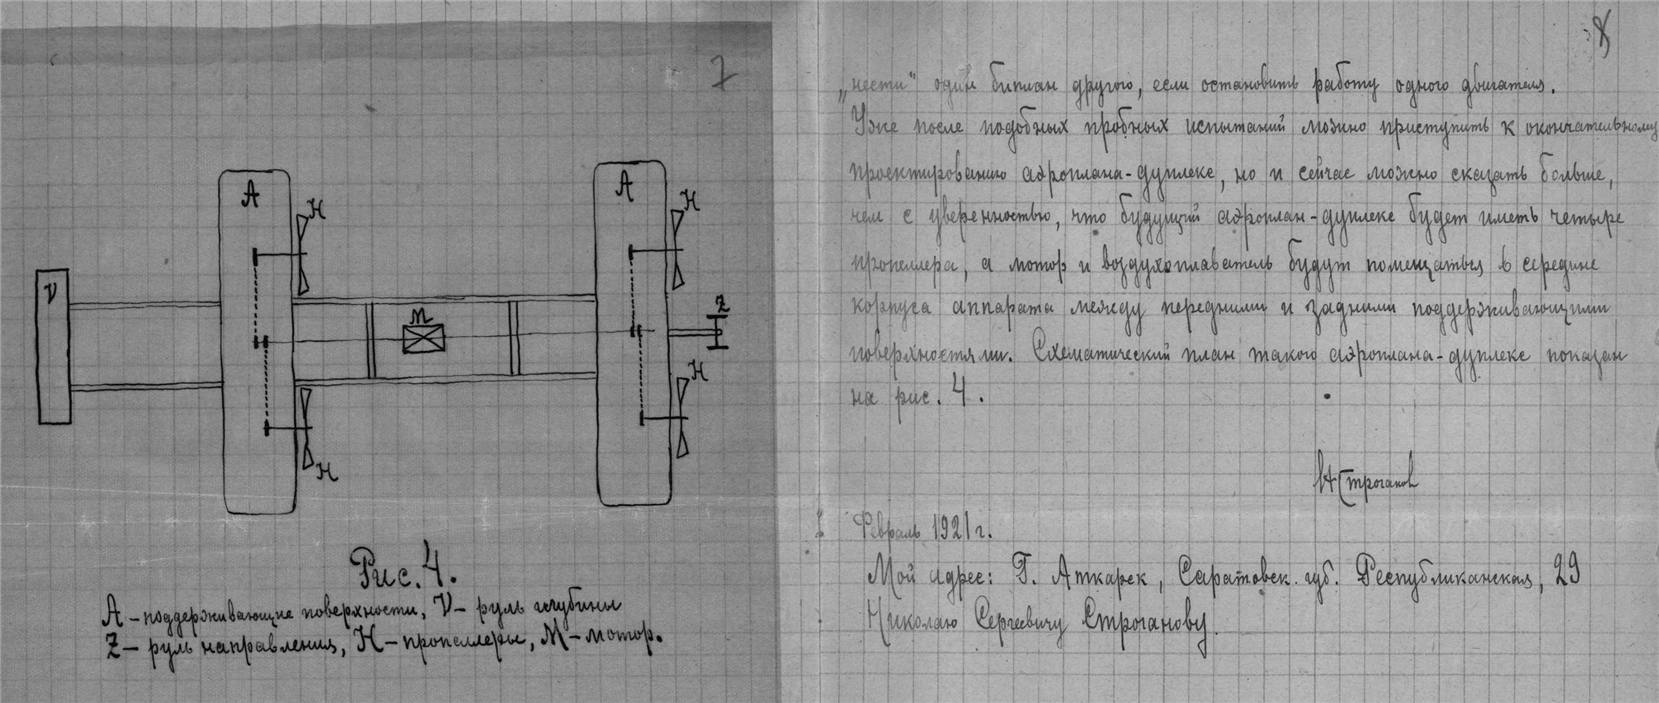 7
V
A
H
H
M
A
H
H
Z
Рис. 4.
A – поддерживающие поверхности, V – руль глубины
Z – руль направления, H – пропеллеры, M – мотор.
8
„нести" один биплан другого, если остановить работу одного двигателя.
Уже после подобных пробных испытаний можно приступить к окончательному
проектированию аэроплана-дуплекс, но и сейчас можно сказать больше,
чем с уверенностью, что будущий аэроплан-дуплекс будет иметь четыре
пропеллера, а мотор и воздухоплаватель будут помещаться в середине
корпуса аппарата между передними и задними поддерживающими
поверхностями. Схематический план такого аэроплана-дуплекс показан
на рис. 4.
НСтроганов
Февраль 1921 г.
Мой адрес: Г. Аткарск, Саратовск. губ. Республиканская, 29
Николаю Сергеевичу Строганову.